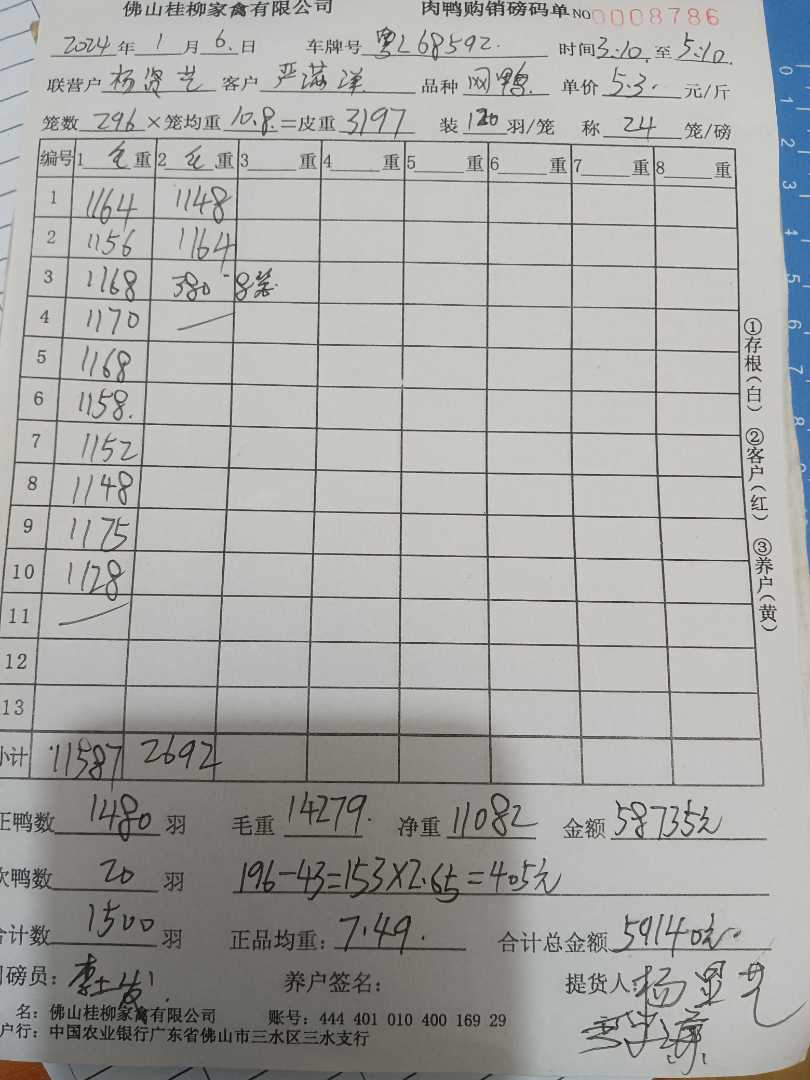 佛山桂柳家禽有限公司 肉鸭购销磅码单 NO 0008786
2024年1月6.日 车牌号 粤L68592. 时间3:10.至5:10.
联营户 杨贤艺 客户 严满洋 品种 网鸭. 单价 5.3. 元/斤
笼数 296 ×笼均重 10.8. =皮重 3197 装 120 羽/笼 称 24 笼/磅
编号 1 毛 重 2 毛 重 3 重 4 重 5 重 6 重 7 重 8 重
1 1164 1148
2 1156 1164
3 1168 380 - 8笼.
4 1170
5 1168
6 1158.
7 1152
8 1148
9 1175
10 1128
11
12
13
小计 11587 2692
正鸭数 1480 羽 毛重 14279. 净重 11082 金额 58735元
次鸭数 20 羽 196-43=153×2.65=405元
合计数 1500 羽 正品均重: 7.49. 合计总金额 59140元.
司磅员: 养户签名: 提货人:
名: 佛山桂柳家禽有限公司 账号: 444 401 010 400 169 29
户行: 中国农业银行广东省佛山市三水区三水支行
①存根(白) ②客户(红) ③养户(黄)